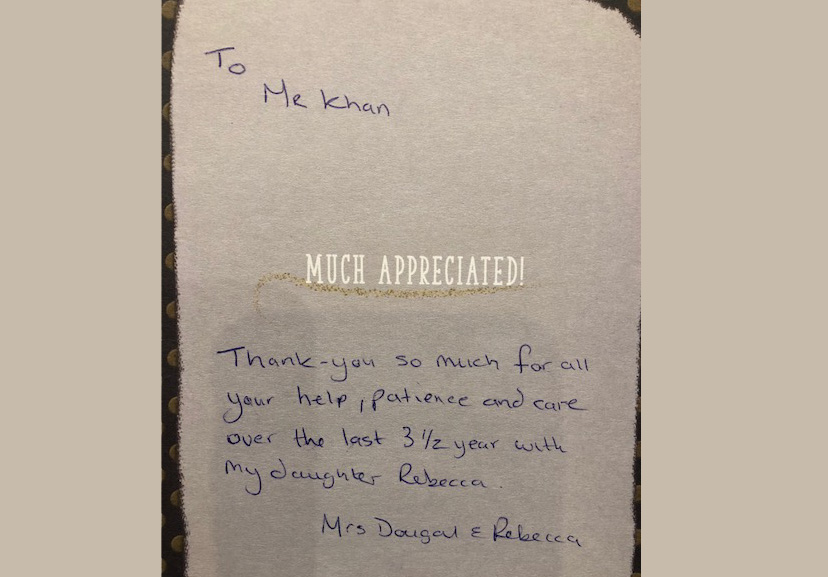 To
Mr Khan
MUCH APPRECIATED!
Thank-you so much for all
your help, patience and care
over the last 3 1/2 year with
my daughter Rebecca.
Mrs Dougal & Rebecca